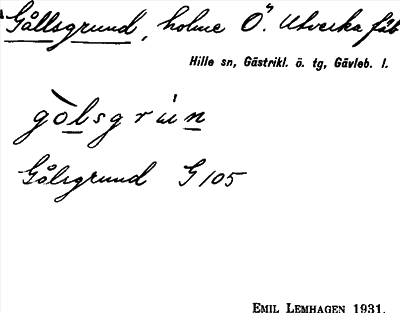 Gållsgrund, holme Ö. Utvarka fäb
Hille sn, Gästrikl. ö. tg, Gävleb. l.
gòlsgrún
Gålsgrund G 105
EMIL LEMHAGEN 1931.